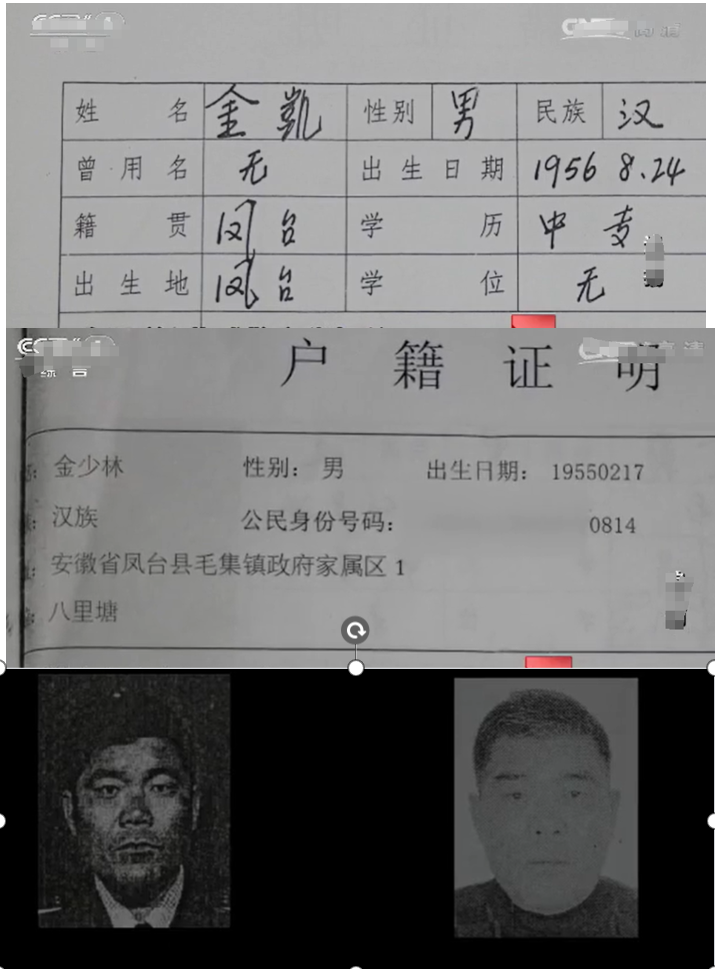 姓名 金凯 性别 男 民族 汉
曾用名 无 出生日期 1956 8.24
籍贯 凤台 学历 中专
出生地 凤台 学位 无
户籍证明
金少林 性别：男 出生日期：19550217
汉族 公民身份号码： 0814
安徽省凤台县毛集镇政府家属区1
八里塘